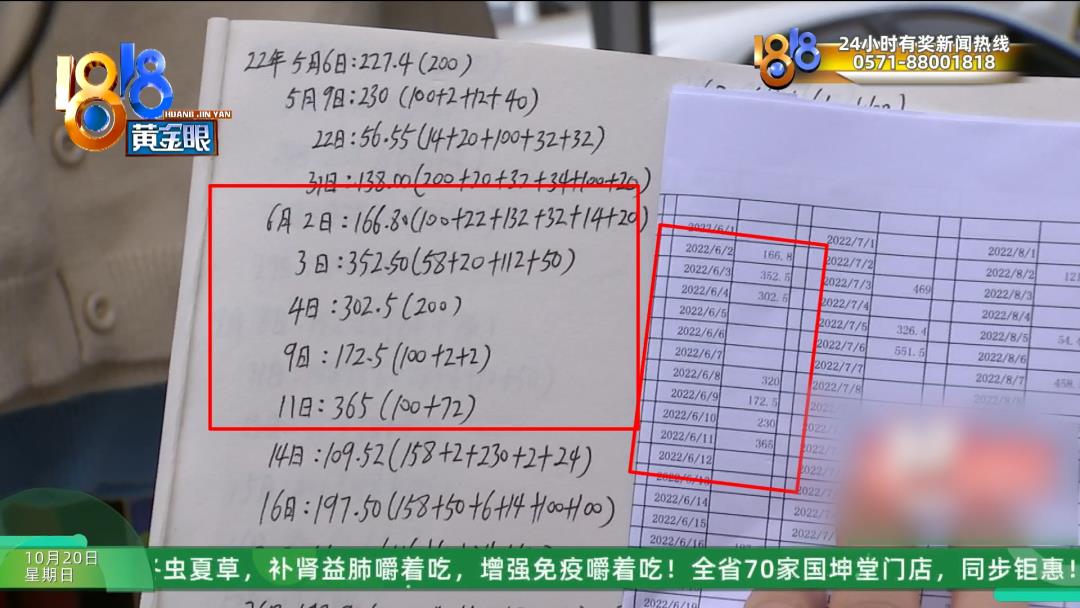 1818
HUANG JIN YAN
黄金眼
1818
24小时有奖新闻热线
0571-88001818
22年5月6日:227.4(200)
5月9日:230(100+2+12+40)
22日:56.55(14+20+100+32+32)
31日:138.00(200+20+32+34+100+20)
6月2日:166.80(100+22+132+32+14+20)
3日:352.50(58+20+112+50)
4日:302.5(200)
9日:172.5(100+2+2)
11日:365(100+72)
14日:109.52(158+2+230+2+24)
16日:197.50(158+50+6+14+100+100)
2022/6/1
2022/6/2 166.8
2022/6/3 352.5
2022/6/4 302.5
2022/6/5
2022/6/6
2022/6/7
2022/6/8 320
2022/6/9 172.5
2022/6/10 230
2022/6/11 365
2022/6/12
2022/6/13
2022/6/14
2022/6/15
2022/6/16
2022/7/1
2022/7/2
2022/7/3 469
2022/7/4
2022/7/5 326.4
2022/7/6 551.5
2022/7/7
2022/7/8
2022/8/1
2022/8/2
2022/8/3
2022/8/4
2022/8/5
2022/8/6
2022/8/7
10月20日
星期日
冬虫夏草，补肾益肺嚼着吃，增强免疫嚼着吃！全省70家国坤堂门店，同步钜惠！